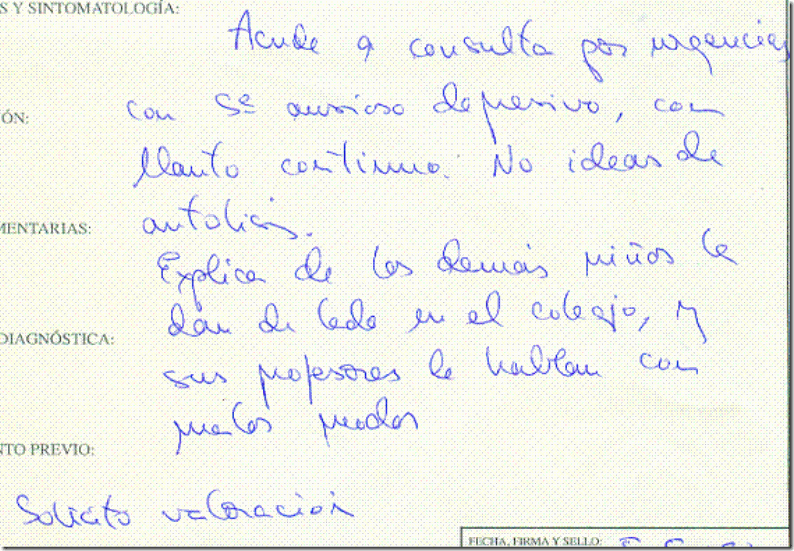 S Y SINTOMATOLOGÍA:
Acude a consulta por urgencias
ÓN:
con Sº ansioso depresivo, con
llanto continuo. No ideas de
MENTARIAS:
autolisis.
Explica de los demás niños le
dan de lado en el colegio, y
DIAGNÓSTICA:
sus profesores le hablan con
malos modos
NTO PREVIO:
Solicito valoración
FECHA, FIRMA Y SELLO: